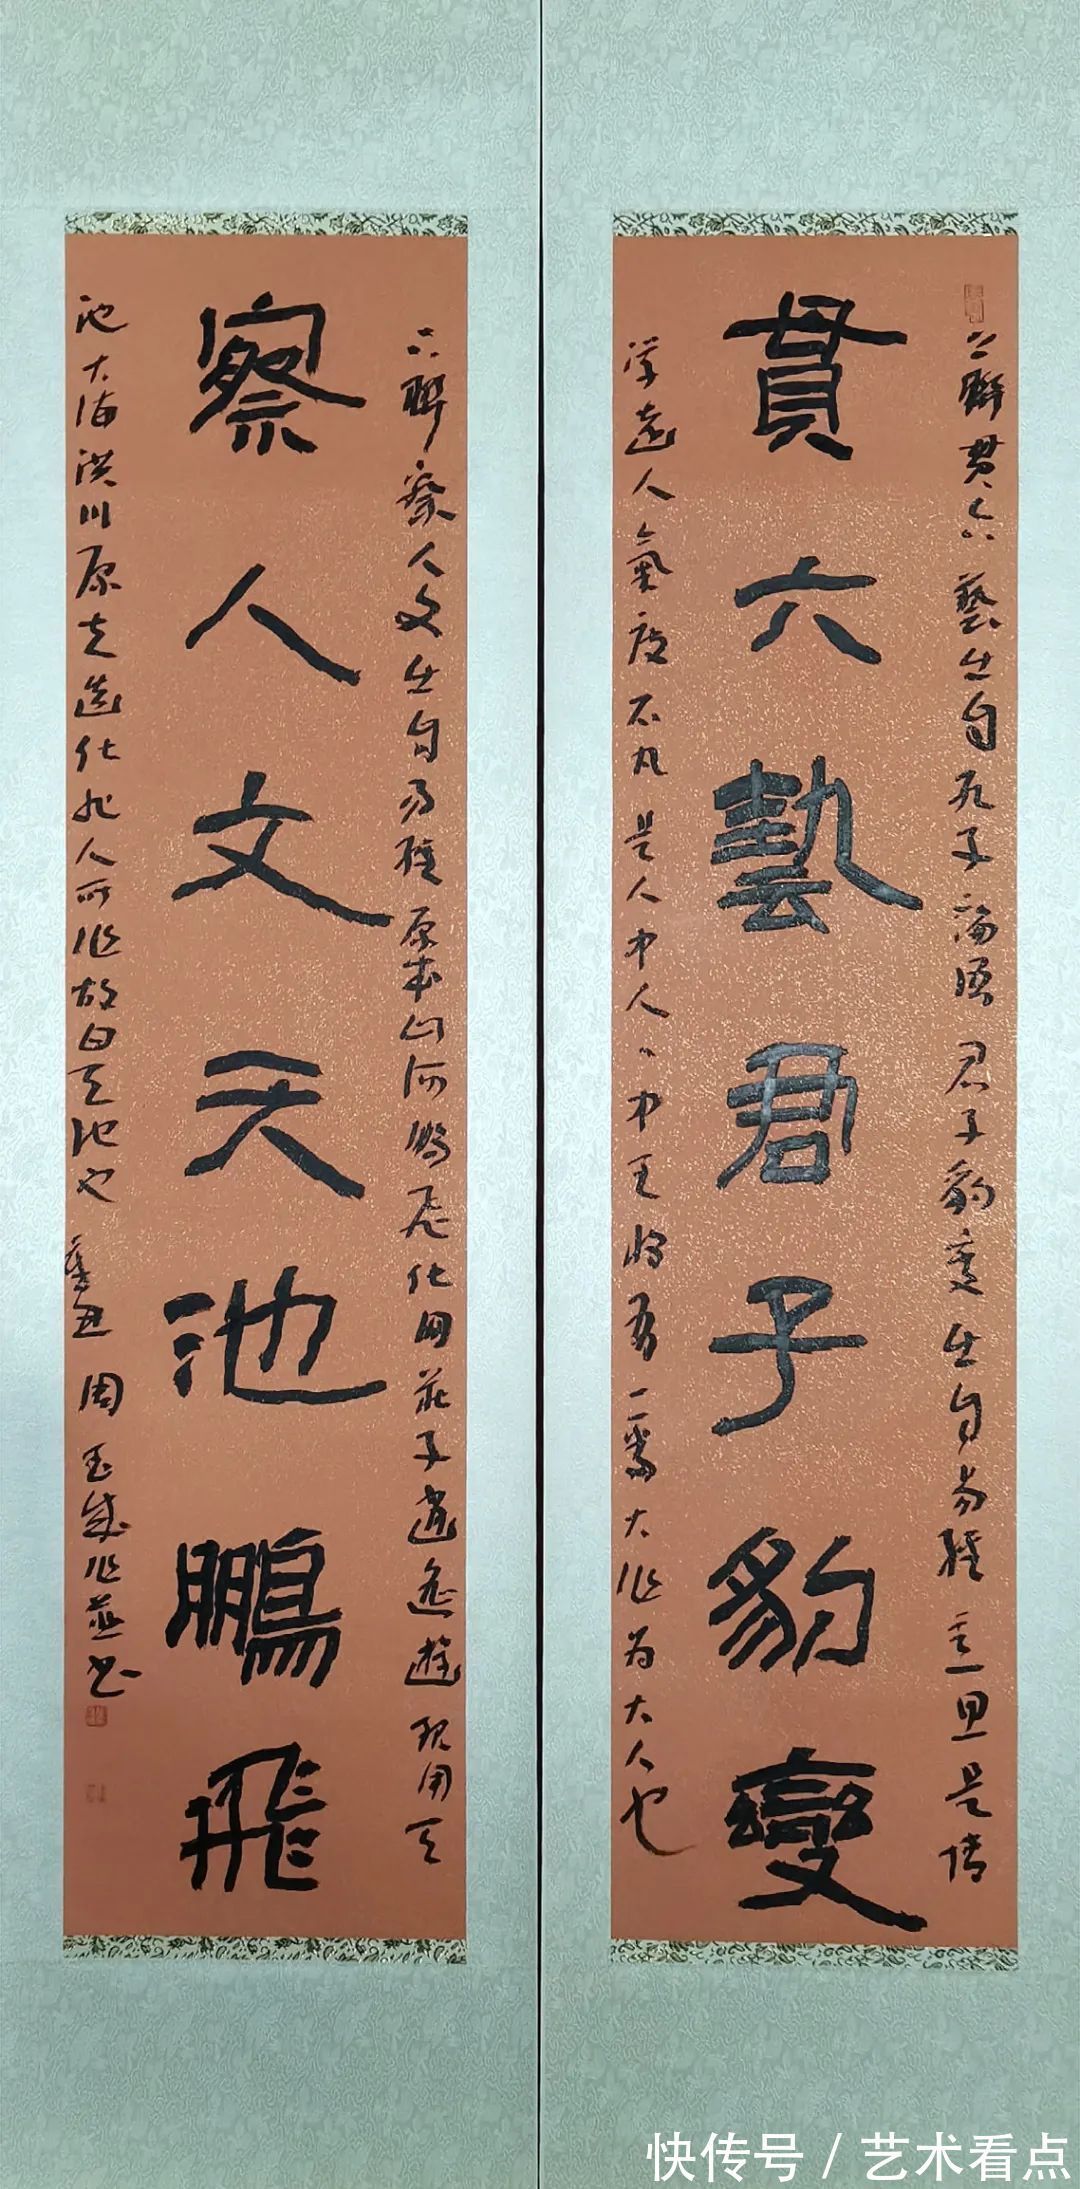 貫六藝君子豹變
上聯貫六藝出自孔子論語君子豹變出自易經
学
人氣度不凡是人中人人中王將有一番大作为大人也
察人文天池鵬飛
下聯察人文出自易經原本山河鵬飛化用莊子逍遙遊現用天
池大海洪川原夫造化非人所作故曰天池也
辛丑周玉成作並书
快传号 / 艺术看点